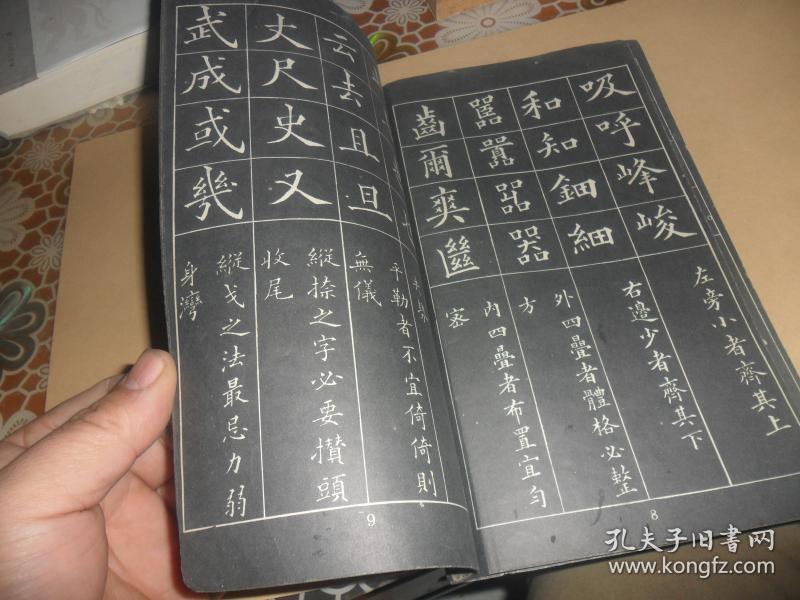 吸呼峰峻
左旁小者齊其上
和知鈿細
右邊少者齊其下
囂器
外四疊者體格必整
方
齒爾爽
內四疊者布置宜勻
密
8
云去且旦
平勒者不宜倚倚則
無儀
丈尺史又
縱捺之字必要攢頭
收尾
武成或幾
縱戈之法最忌力弱
身灣
9
孔夫子旧书网
www.kongfz.com